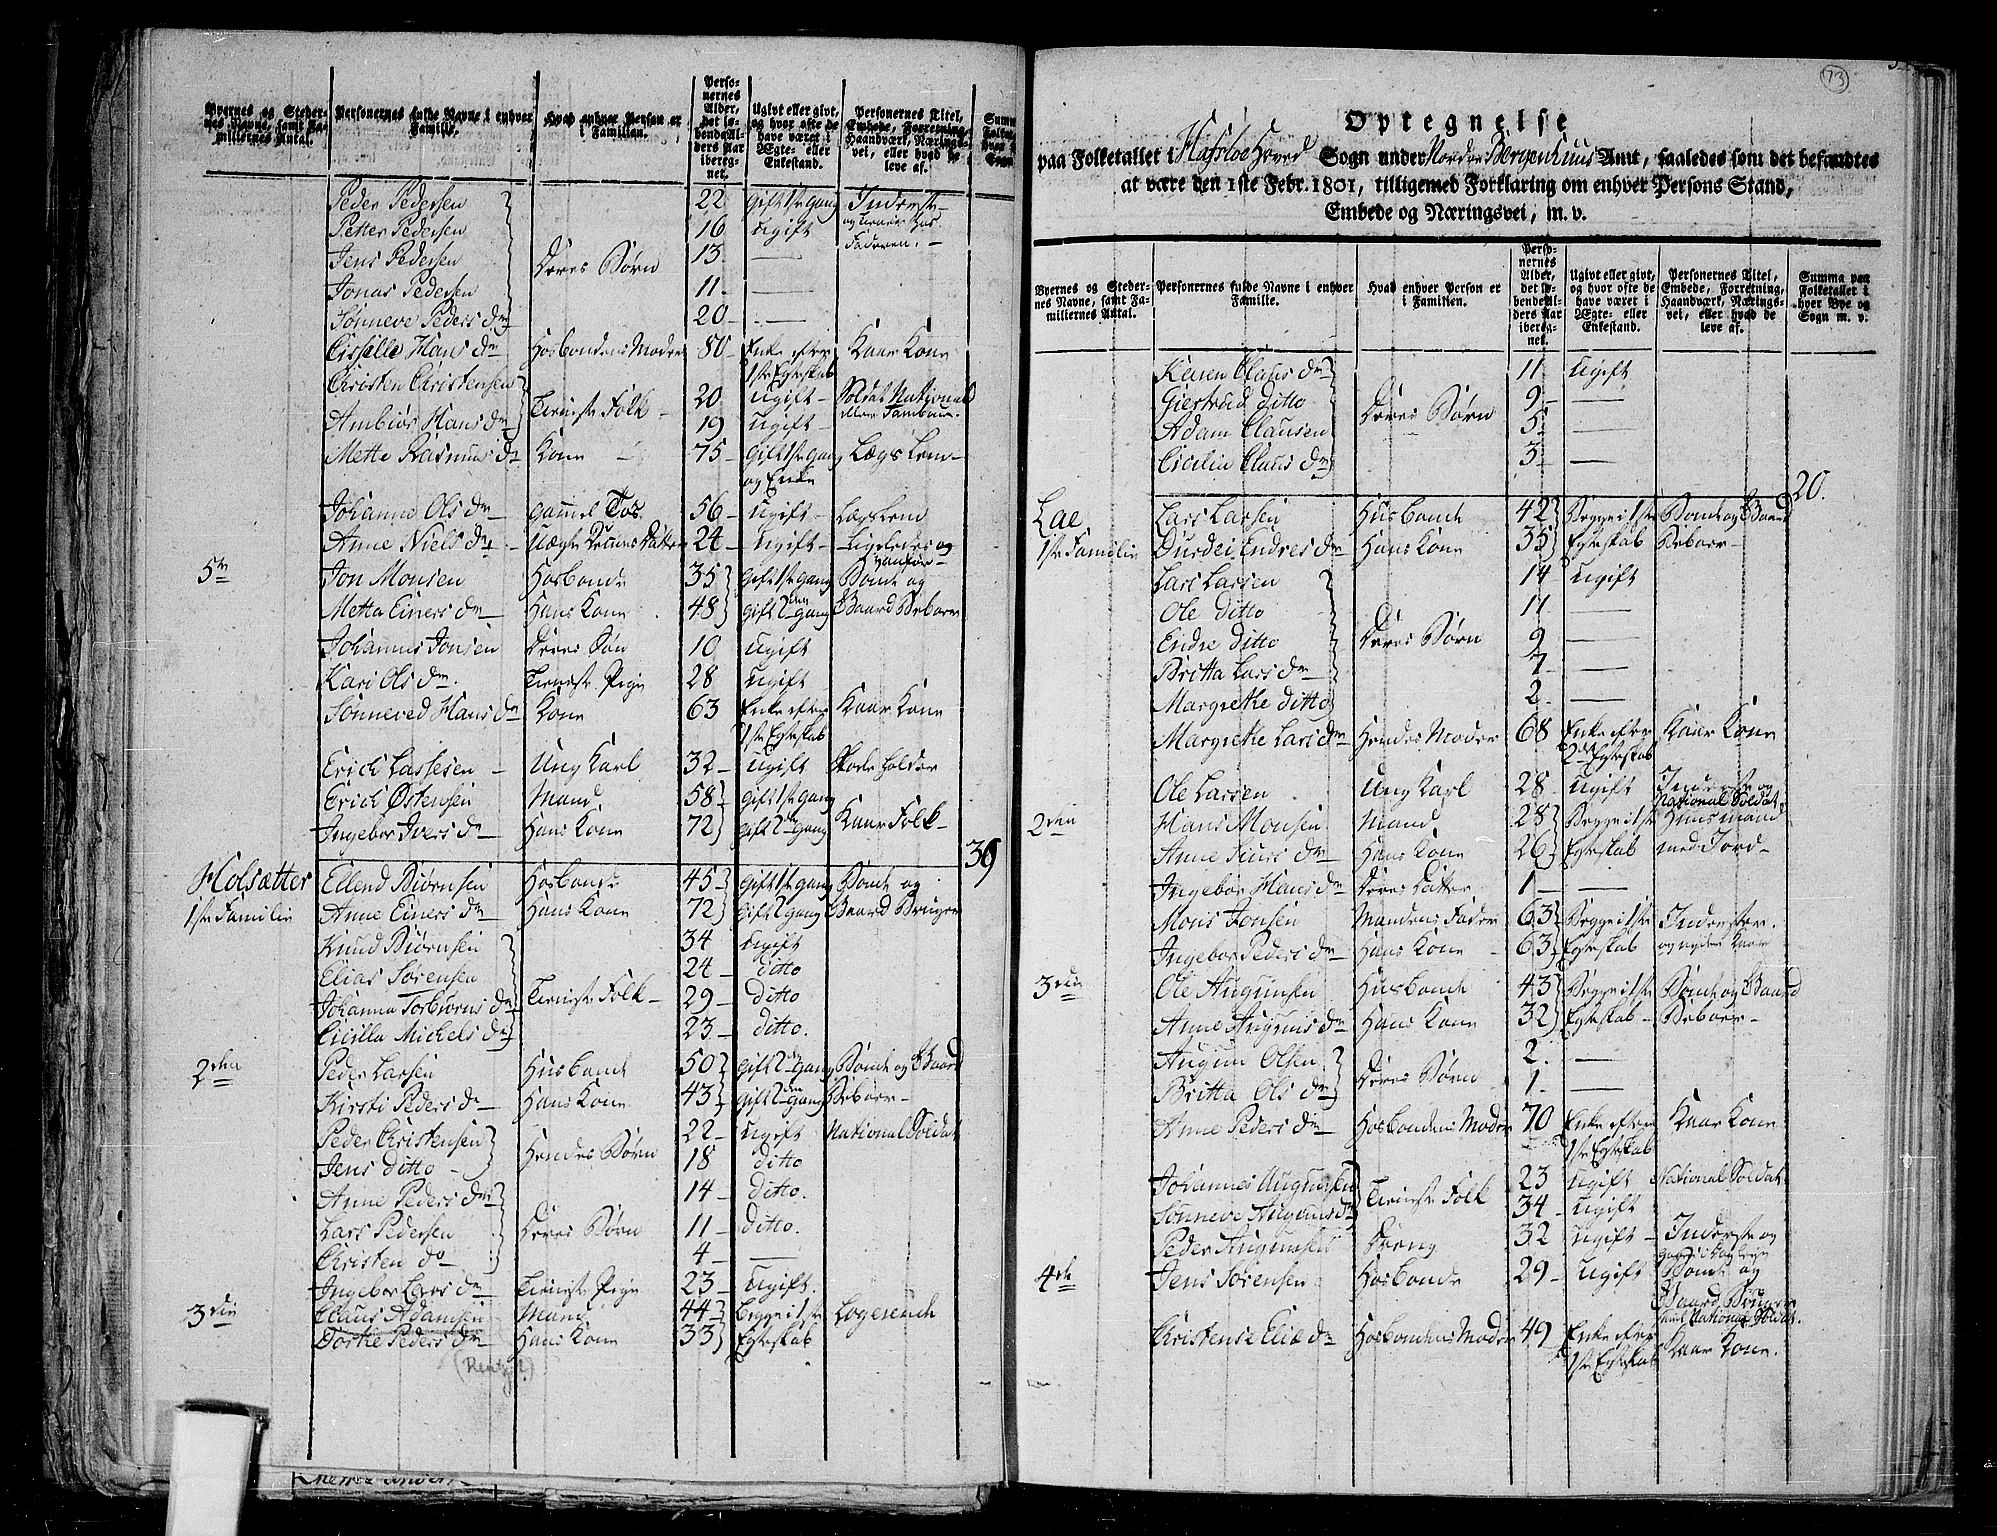 Byernes og Steder-
nes Navne, samt Fa-
miliernes Antal.
Personernes fulde Navne i enhver
Familie.
Hvad enhver Person er
i Familien.
Perso-
nernes
Alder,
det lø-
bende Al-
ders Aar
ibereg-
net.
Ugivt eller givt,
og hvor ofte de
have været i
Ægte- eller
Enkestand.
Personernes Titel,
Embede, Forretning,
Haandværk, Nærings-
vei, eller hvad de
leve af.
Peder Pedersen 22 gift 1ste gang Inderste
Petter Pedersen 16 ugift
Jens Pedersen Deres Børn 13 —
Jonas Pedersen 11 —
Sønneve Peders dr 20 —
Cisselle Hans dr Hosbondens Moder 80 Enke efter Kaar Kone
1ste Egteskab
Christen Christensen 20 ugift Soldat National
Ambiør Hans dr Tieniste Folk 19 ugift
Mette Rasmus dr Kone 75 gift 1ste gang Lægs Lem
og Enke
Johanne Ols dr gammel Tøs 56 ugift Lægs Lem
Anne Niels dr 24 ugift Ligeledes og
5te Jon Monsen Hosbonde 35 gift 1ste gang Bonde og
Metta Einers dr Hans Kone 48 gift 2den gang Gaard Beboer
Johannes Jonsen Deres Søn 10 ugift
Kari Ols dr Tieniste Pige 28 ugift
Sønneved Hans dr Kone 63 Enke efter Kaar Kone
1ste Egteskab
Erich Lassesen Ung Karl 32 ugift Skoleholder
Erich Østensen Mand 58 gift 1ste gang
Ingebor Ivers dr Hans Kone 72 gift 2den gang Kaar Folk
39
Holsætter Ellend Biørnsen Hosbonde 45 gift 1ste gang Bonde og
1ste Familie Anne Einers dr Hans Kone 72 gift 2 gang Gaard Bruger
Knud Biørnsen 34 ugift
Elias Sørensen 24 ditto
Johanna Torbiørns dr Tieniste Folk 29 ditto
Cicilla Michels dr 23 ditto.
2den Peder Larsen Husbonde 50 gift 2den gang Bonde og Gaard
Kirsti Peders dr Hans Kone 43 gift 2den gang Beboer
Peder Christensen 22 ugift National Soldat
Jens ditto Hendes Børn 18 ditto
Anne Peders dr 14 ditto.
Lars Pedersen Deres Børn 11 ditto.
Christen do 4 —
Ingebor Lars dr Tieniste Pige 23 ugift.
3die Claus Adamsen Mand 44 begge i 1ste Logerende
Dorthe Peders dr Hans Kone 33 Egteskab
(Rentz?)
73
Optegnelse
paa Folketallet i Hafsloe Hoved Sogn under Nordre Bergenhuus Amt, saaledes som det befandtes
at være den 1ste Febr. 1801, tilligemed Forklaring om enhver Persons Stand,
Embede og Næringsvei, m. v.
Byernes og Steder-
nes Navne, samt Fa-
miliernes Antal.
Personernes fulde Navne i enhver
Familie.
Hvad enhver Person er
i Familien.
Perso-
nernes
Alder,
det lø-
bende Al-
ders Aar
ibereg-
net.
Ugivt eller givt,
og hvor ofte de
have været i
Ægte- eller
Enkestand.
Personernes Titel,
Embede, Forretning,
Haandværk, Nærings-
vei, eller hvad de
leve af.
Summa paa
Folketallet i
hver Bye og
Sogn m. v.
Karen Claus dr 11 ugift
Giertrud ditto 9 —
Adam Clausen Deres Børn 5 —
Cicilia Claus dr 3 —
20.
Lae Lars Larsen Husbonde 42 Begge i 1ste Bonde og Gaard
1ste Familie Durdei Endres dr Hans Kone 35 Egteskab Beboer
Lars Larsen 14 ugift
Ole ditto 11 —
Endre ditto Deres Børn 9 —
Britta Lars dr 7 —
Margrethe ditto 2 —
Margrethe Lars dr Hendes Moder 68 Enke efter Kaar Kone
2det Egteskab
Ole Larsen Ung Karl 28 ugift Inderste og
National Soldat
2den Hans Monsen Mand 28 Begge i 1ste Huusmand
Anne Siurs dr Hans Kone 26 Egteskab med Jord
Ingebor Hans dr Deres Datter 1 —
Mons Jonsen Mandens Fader 63 Begge i 1ste Inderster
Ingebor Peders dr Hans Kone 63 Egteskab og nyder Kaar
3die Ole Augunsen Husbonde 43 Begge i 1ste Bonde og Gaard
Anne Auguns dr Hans Kone 32 Egteskab Beboer
Augun Olsen 2 —
Britta Ols dr Deres Børn 1 —
Anne Peders dr Hosbondens Moder 70 Enke efter Kaar Kone
1ste Egteskab
Johannes Augunsen 23 ugift National Soldat
Sønneve Auguns dr Tieniste Folk 34 ugift
Peder Augunsen Dreng 32 ugift Inderste og
4de Jens Sørensen Hosbonde 29 ugift Bonde og
Gaard Bruger
samt National Soldat.
Christense Eliæ dr Hosbondens Moder 49 Enke efter Kaar Kone.
1ste Egteskab